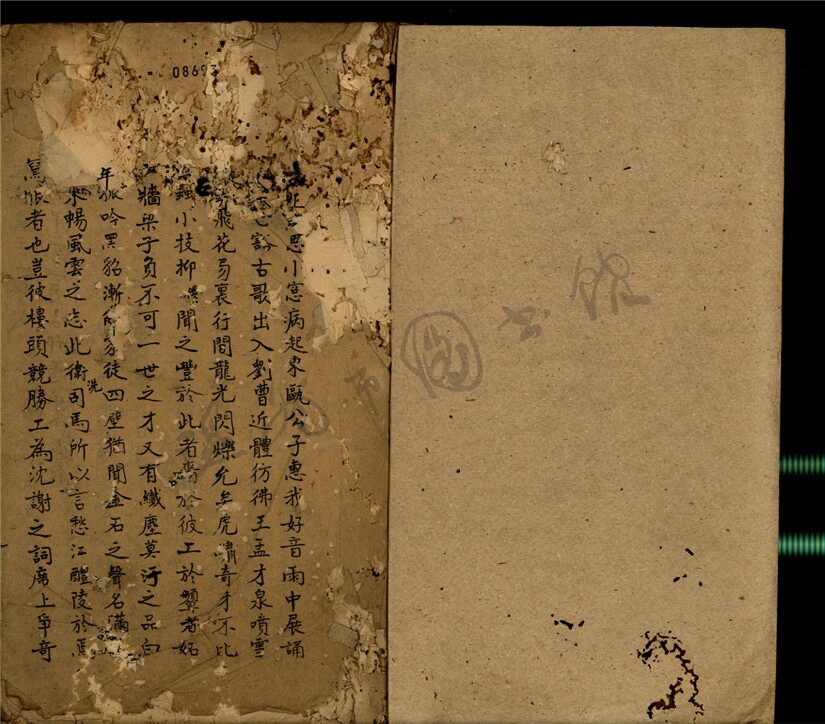 0869
思小窓病起東甌公子惠我好音雨中展誦
豁古歌出入劉曹近體彷彿王孟才泉噴雪
飛花易裏行間龍光閃爍允矣虎嘯奇才不比
蟲小技抑聞之豐於此者嗇於彼工於顰者妬
牆梁子負不可一世之才又有纖塵莫汙之品白
年旅吟黑貂漸徒四壁猶聞金石之聲名滿
暢風雲之志此衛洗司馬所以言愁江醴陵於焉
旅者也豈彼樓頭競勝工為沈謝之詞席上爭奇
市圖書館